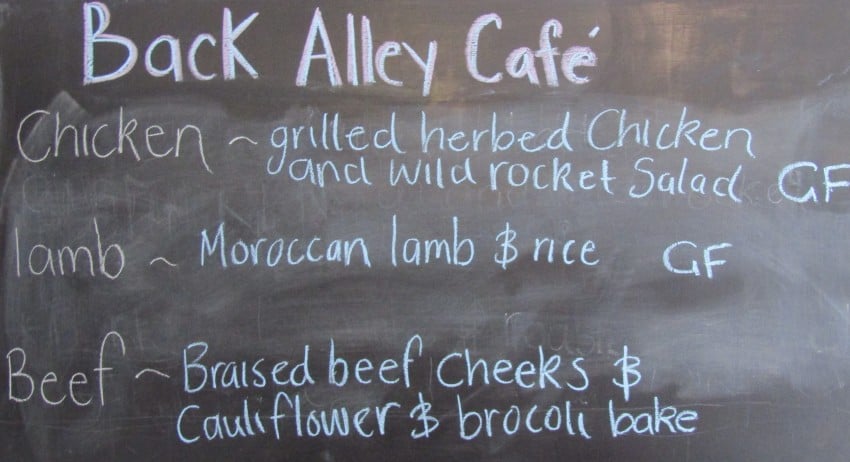 Back Alley Café
Chicken ~ grilled herbed Chicken
and wild rocket Salad GF
lamb ~ Moroccan lamb & rice GF
Beef ~ Braised beef Cheeks &
Cauliflower & brocoli bake